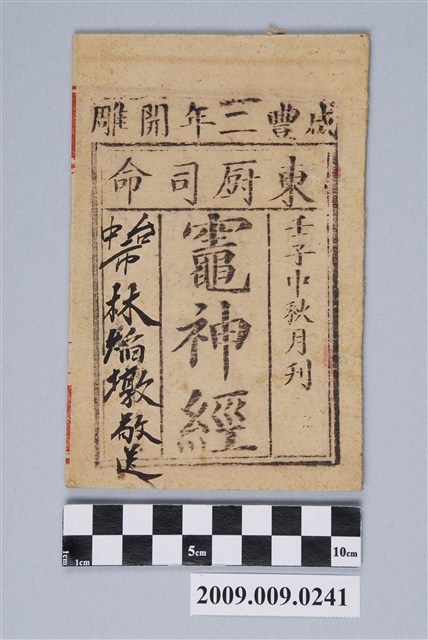 咸豐二年開雕
東厨司命
壬子中秋月刊
竈神經
台中市林焰墩敬送
1cm
1cm
5cm
10cm
2009.009.0241